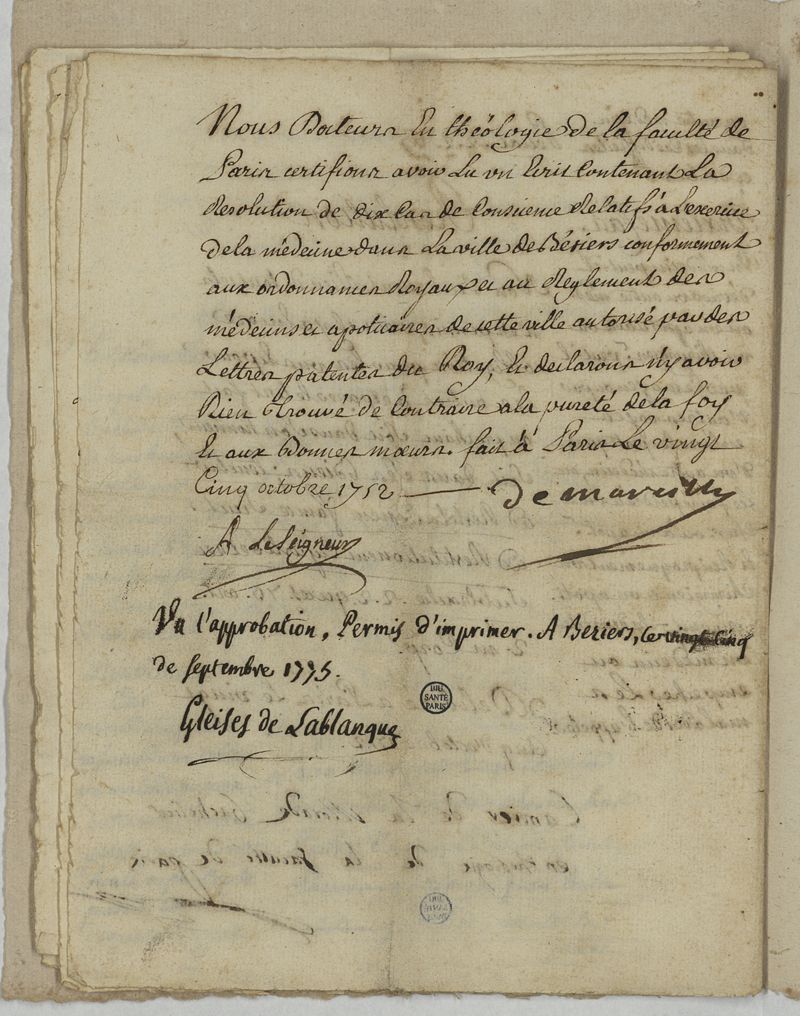 Nous Docteurs En théologie de la faculté de
Paris certifions avoir Lu un Ecrit Contenant La
Resolution de dix Cas de Conscience Relatifs à L'exercice
de la médecine dans La ville de Béziers conformement
aux ordonnances Royaux et au Reglement des
médecins et apoticaires de cette ville autorisé par des
Lettres patentes du Roy, Et declarons n'y avoir
Rien Trouvé de Contraire a la pureté de la foy
Et aux bonnes mœurs. fait à Paris Le vingt
Cinq octobre 1752 de marcilly
A LeSeigneur
Vu l'approbation, Permis d'imprimer. A Beziers, le vingt cinq
de septembre 1775.
Gleises de Lablanque
BIU
SANTÉ
PARIS